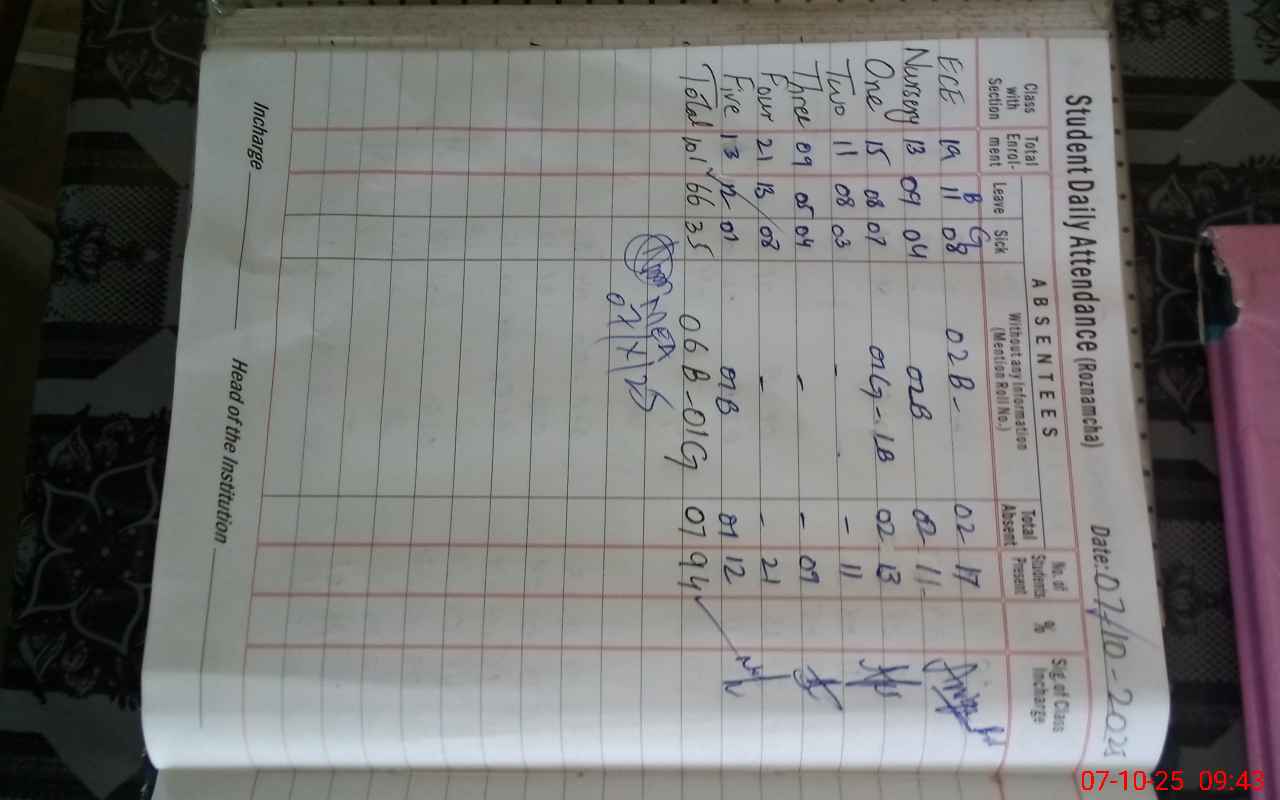 Student Daily Attendance (Roznamcha) Date: 07/10-2025
Class with Section Total Enrol-ment ABSENTEES Total Absent No. of Students Present % Sig. of Class Incharge
Leave Sick Without any Information (Mention Roll No.)
B G
ECE 19 11 08 02B- 02 17
Nursery 13 09 04 02B 02 11
One 15 08 07 01G-1B 02 13
Two 11 08 03 - - 11
Three 09 05 04 - - 09
Four 21 13 08 - - 21
Five 13 12 01 01B 01 12
Total 101 66 35 06B-01G 07 94
07/X/25
Incharge Head of the Institution
07-10-25 09:43